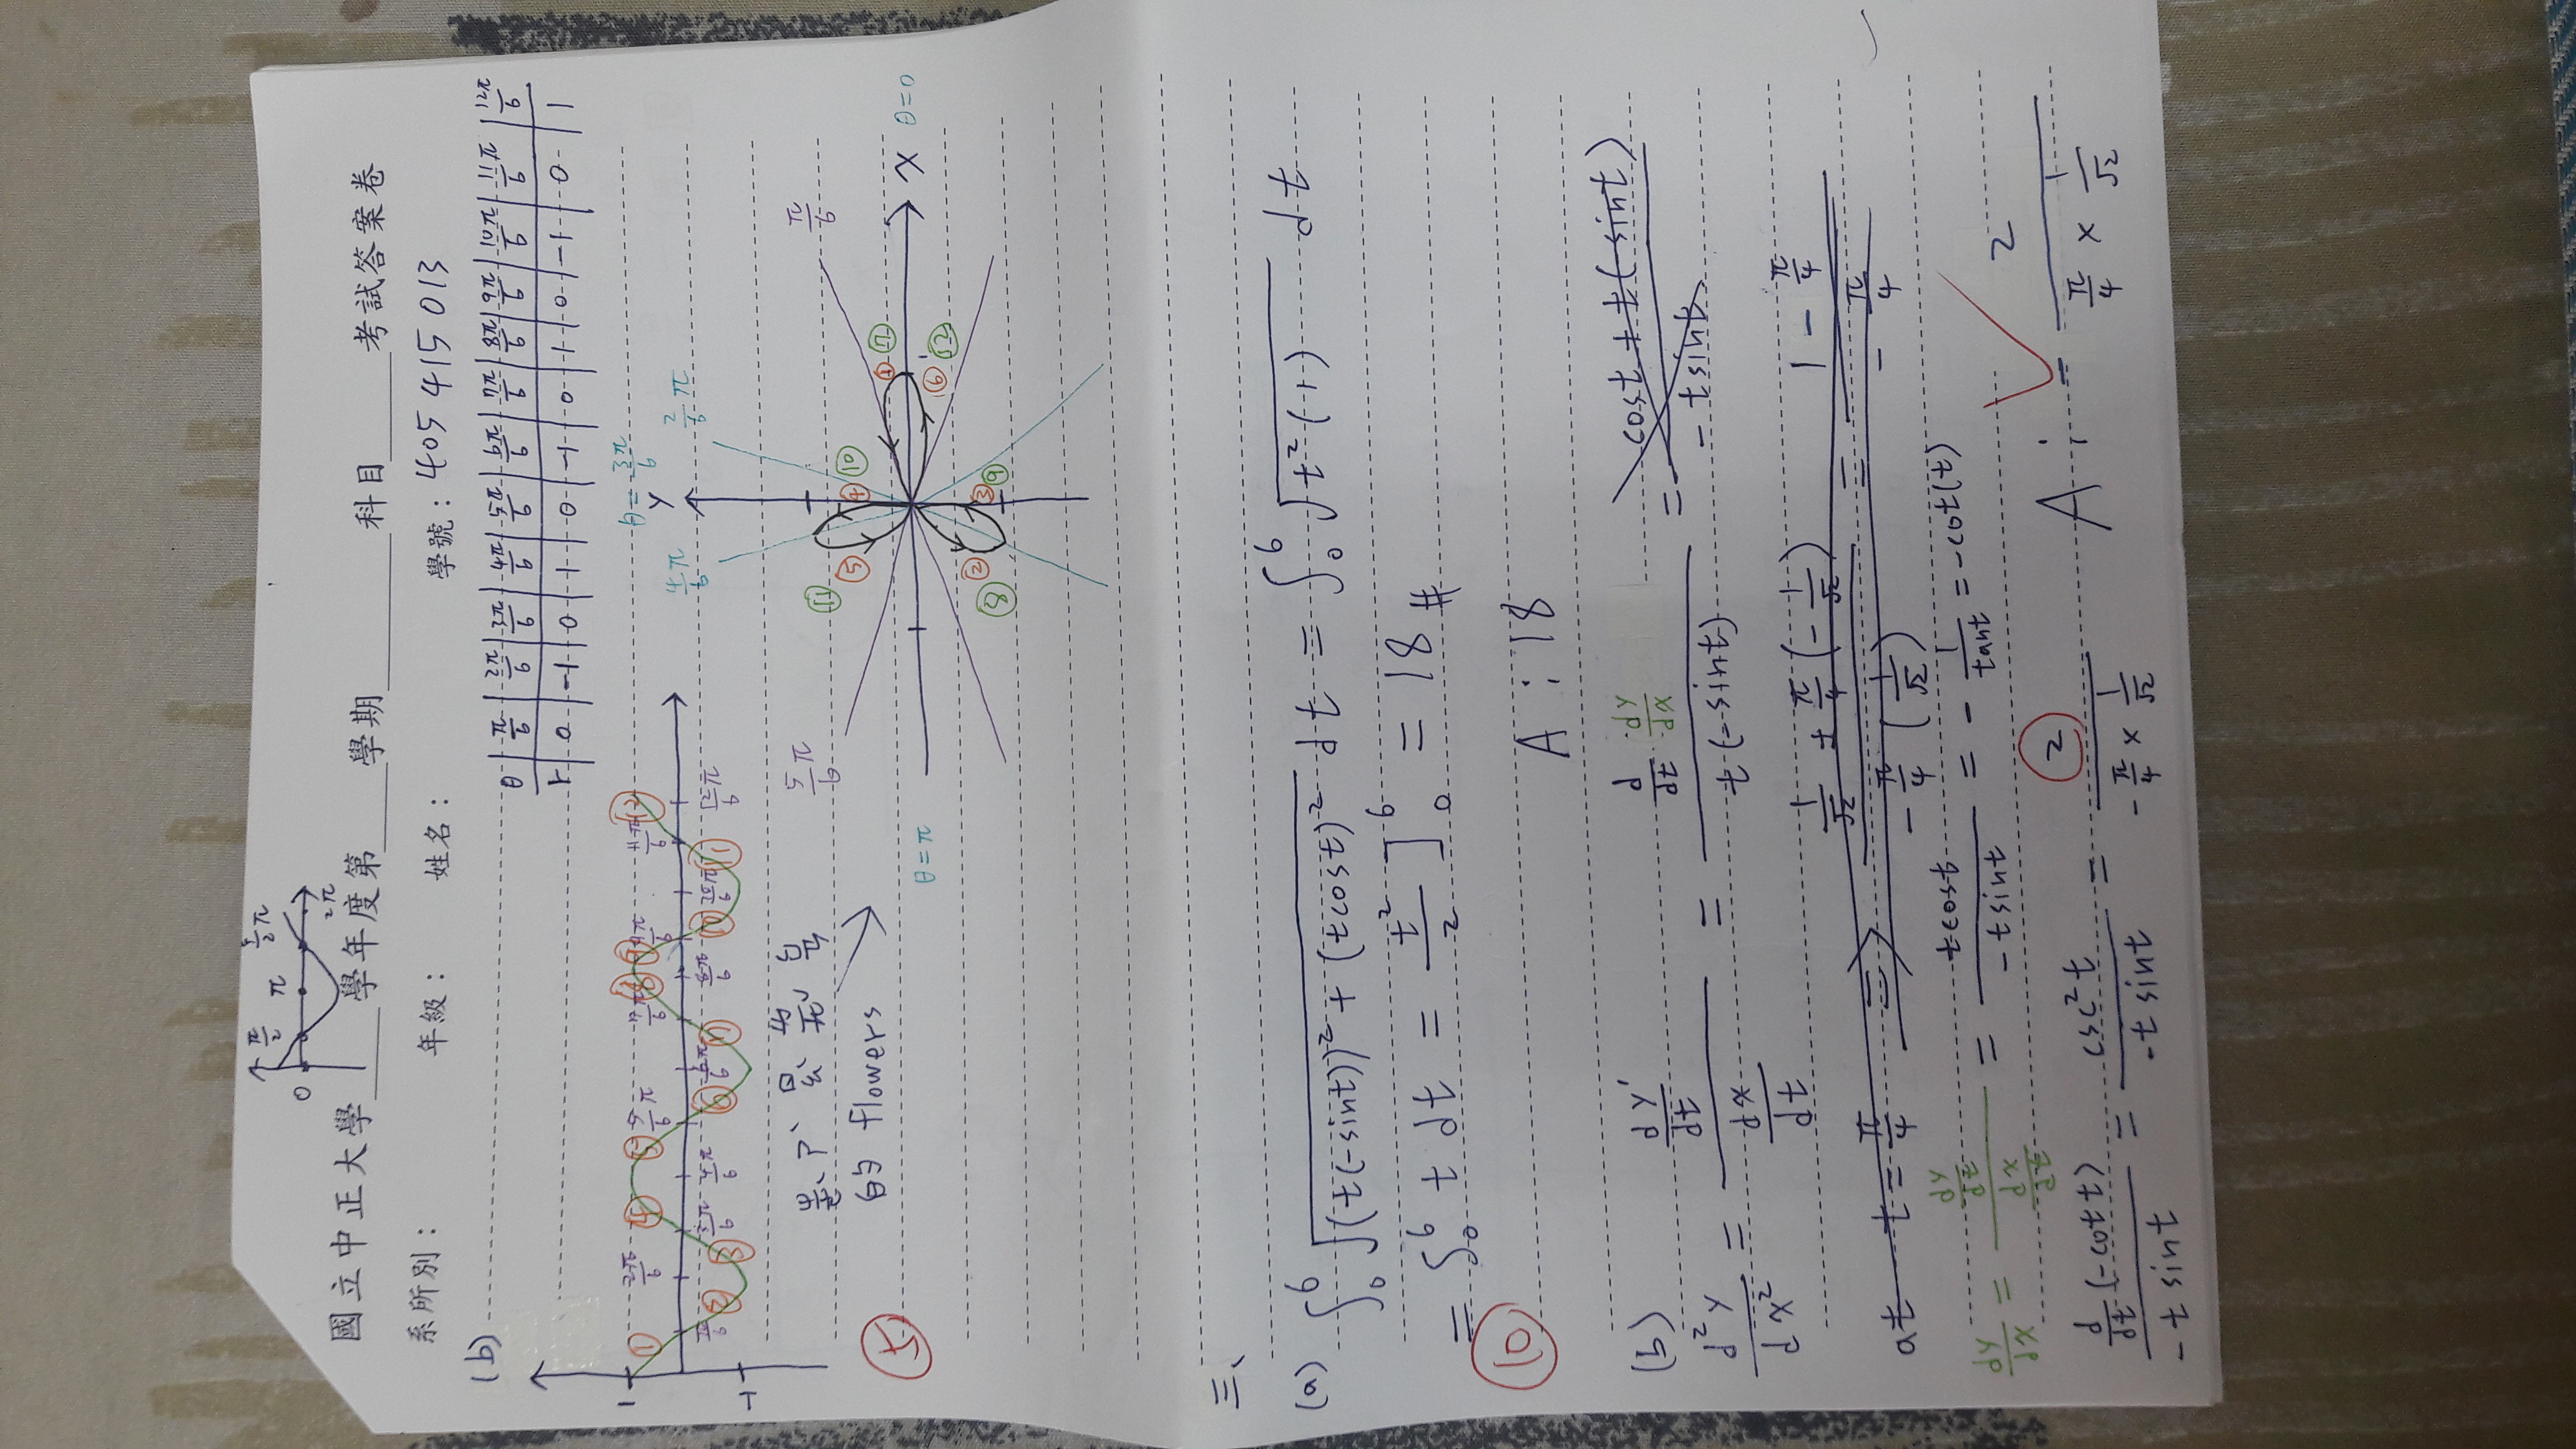 0 π/2 π 3/2π 2π
國立中正大學 學年度第 學期 科目 考試答案卷
系所別： 年級： 姓名： 學號：405415013
(b)
θ π/6 2π/6 3π/6 4π/6 5π/6 6π/6 7π/6 8π/6 9π/6 10π/6 11π/6 12π/6
r 0 -1 0 1 0 -1 0 1 0 -1 0 1
1 ① 2π/6 ④ ⑤ 5/6π 7/6π ⑧ ⑨ 9π/6 11π/6 ⑫
-1 π/6 ② ③ 3/6π 4/6π ⑥ 6/6π ⑦ 8π/6 ⑩ 10/6π ⑪ 12/6π
θ=3π/6
4/6π y 2/6π
5/6π π/6
的 flowers
⑤
⑪ ⑤ ④ ⑩ ① ⑦
θ=π x θ=0
⑥ ⑫
⑧ ② ③ ⑨
三、
(a) ∫₀⁶ √((t(-sint))² + (tcost)²) dt = ∫₀⁶ √(t²(1)) dt
= ∫₀⁶ t dt = t²/2 ]₀⁶ = 18 #
⑩
A : 18
(b) d²y/dx² = (dy'/dt)/(dx/dt) = (d/dt · dy/dx)/(t(-sint)) = (cost + t(-sint))/(-tsint)
at t = π/4 ⇒ (1/√2 + π/4(-1/√2))/(-π/4(1/√2)) = (1 - π/4)/(-π/4)
dy/dx = (dy/dt)/(dx/dt) = tcost/(-tsint) = -1/tant = -cot(t)
(d/dt(-cot t))/(-t sint) = csc²t/(-t sint) = 2/(-π/4 × 1/√2) A : -2/(π/4 × 1/√2)